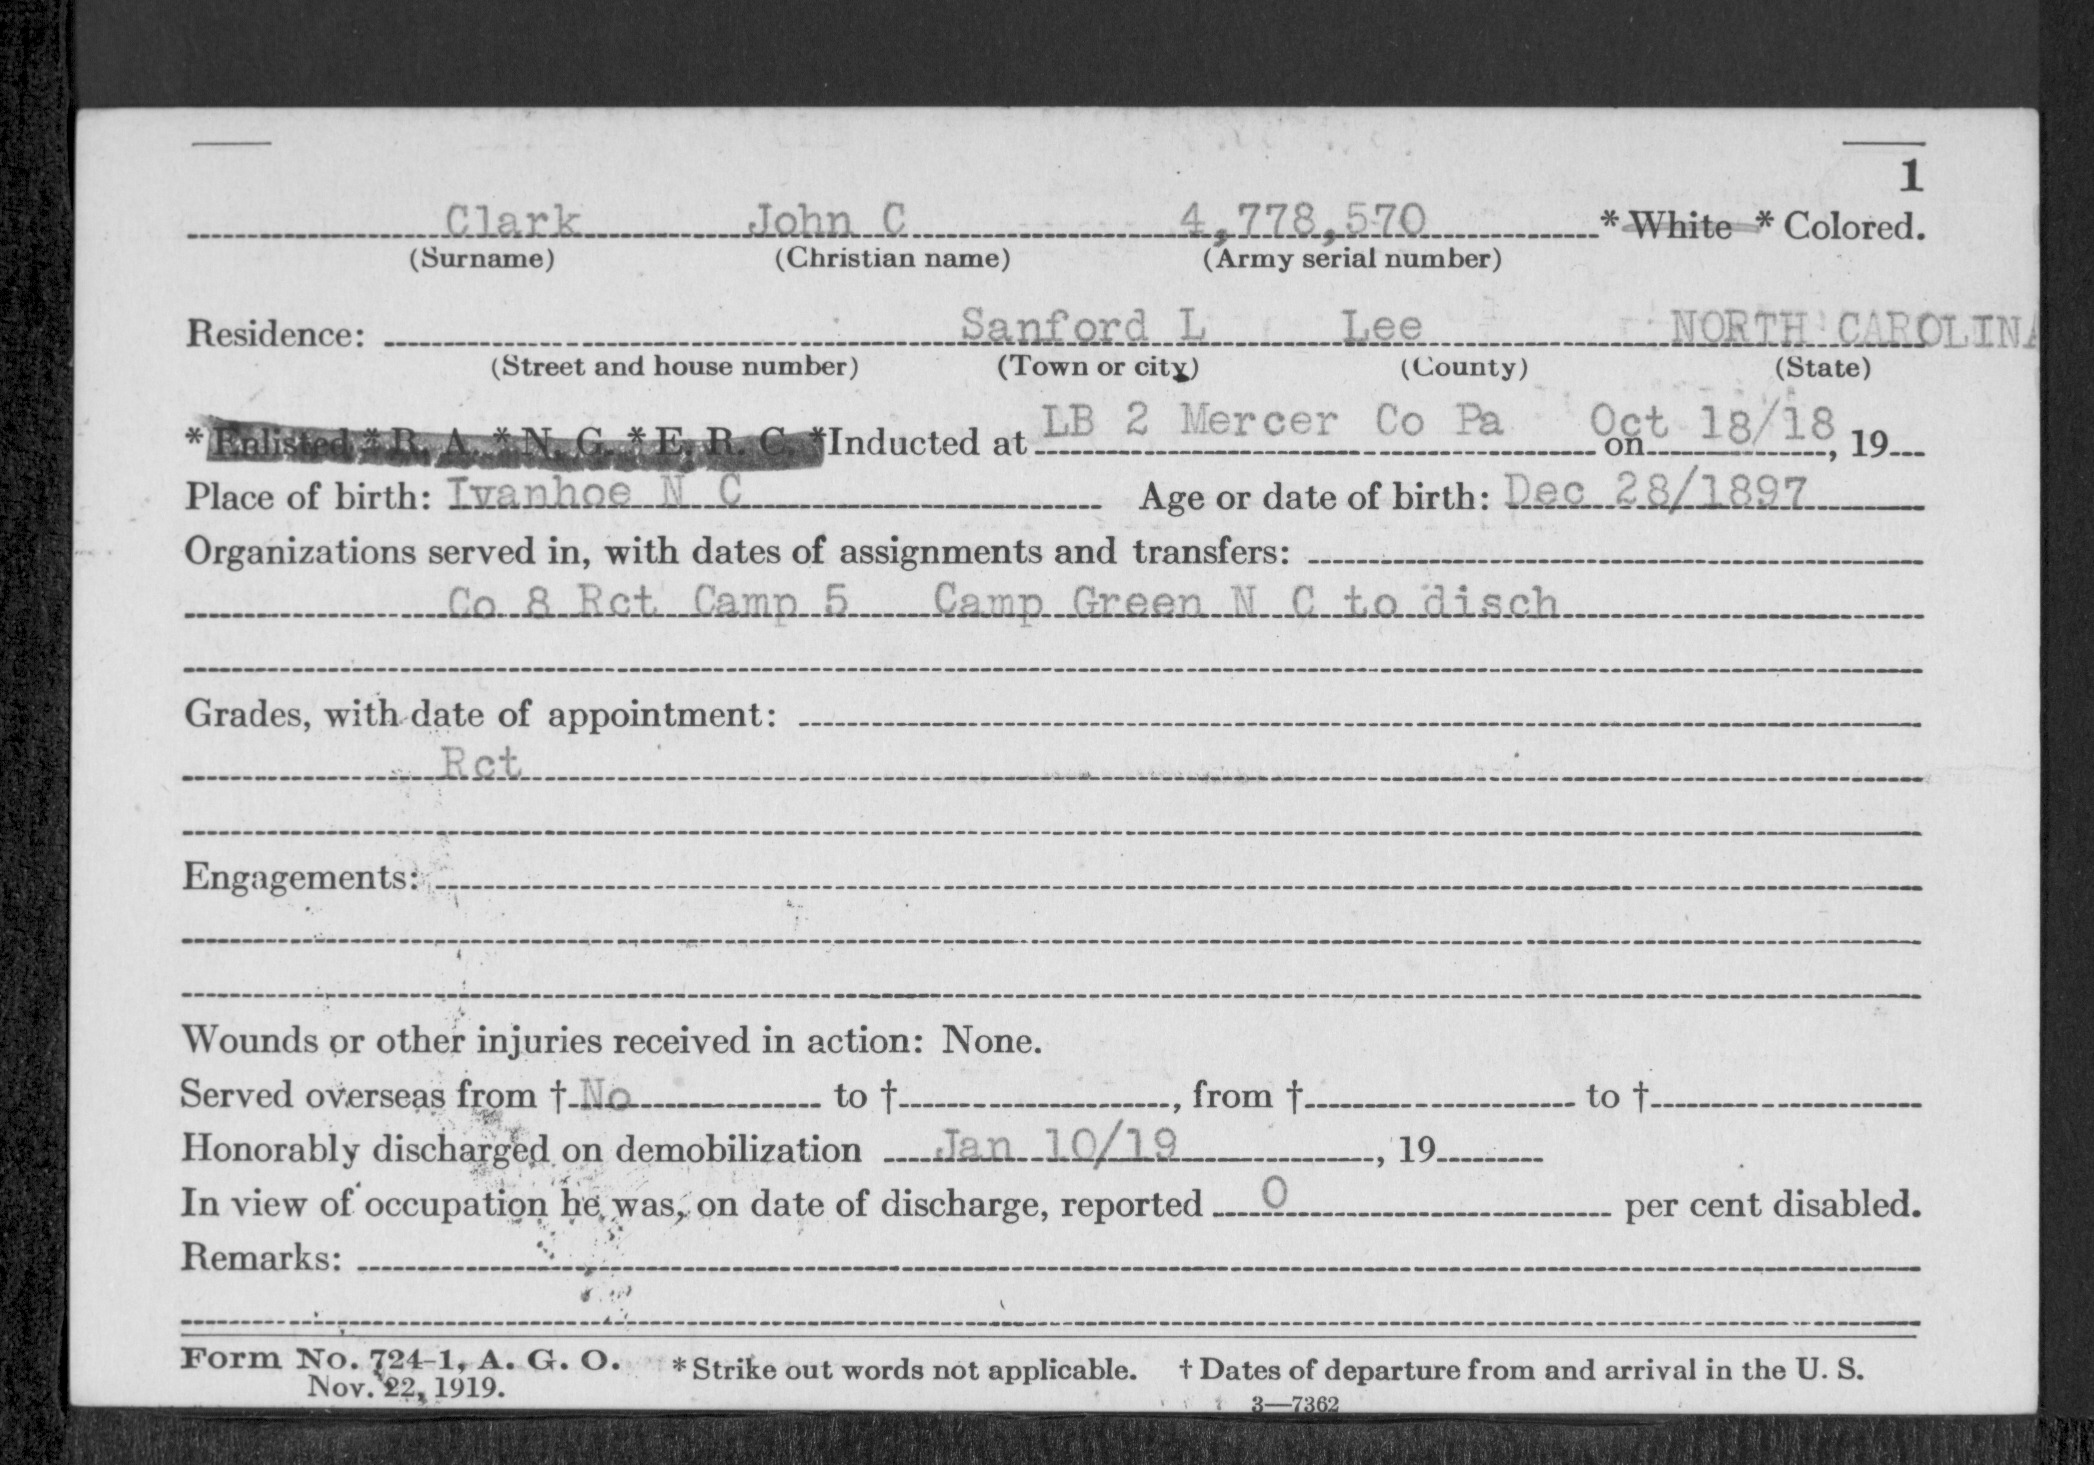 1
Clark John C 4,778,570 * White * Colored.
(Surname) (Christian name) (Army serial number)
Residence: Sanford L Lee NORTH CAROLINA
(Street and house number) (Town or city) (County) (State)
* Enlisted * R. A. * N. G. * E. R. C. * Inducted at LB 2 Mercer Co Pa on Oct 18/18, 19
Place of birth: Ivanhoe N C Age or date of birth: Dec 28/1897
Organizations served in, with dates of assignments and transfers:
Co 8 Rct Camp 5 Camp Green N C to disch
Grades, with date of appointment:
Rct
Engagements:
Wounds or other injuries received in action: None.
Served overseas from † No to †, from † to †
Honorably discharged on demobilization Jan 10/19, 19
In view of occupation he was, on date of discharge, reported 0 per cent disabled.
Remarks:
Form No. 724-1, A. G. O. * Strike out words not applicable. † Dates of departure from and arrival in the U. S.
Nov. 22, 1919.
3—7362